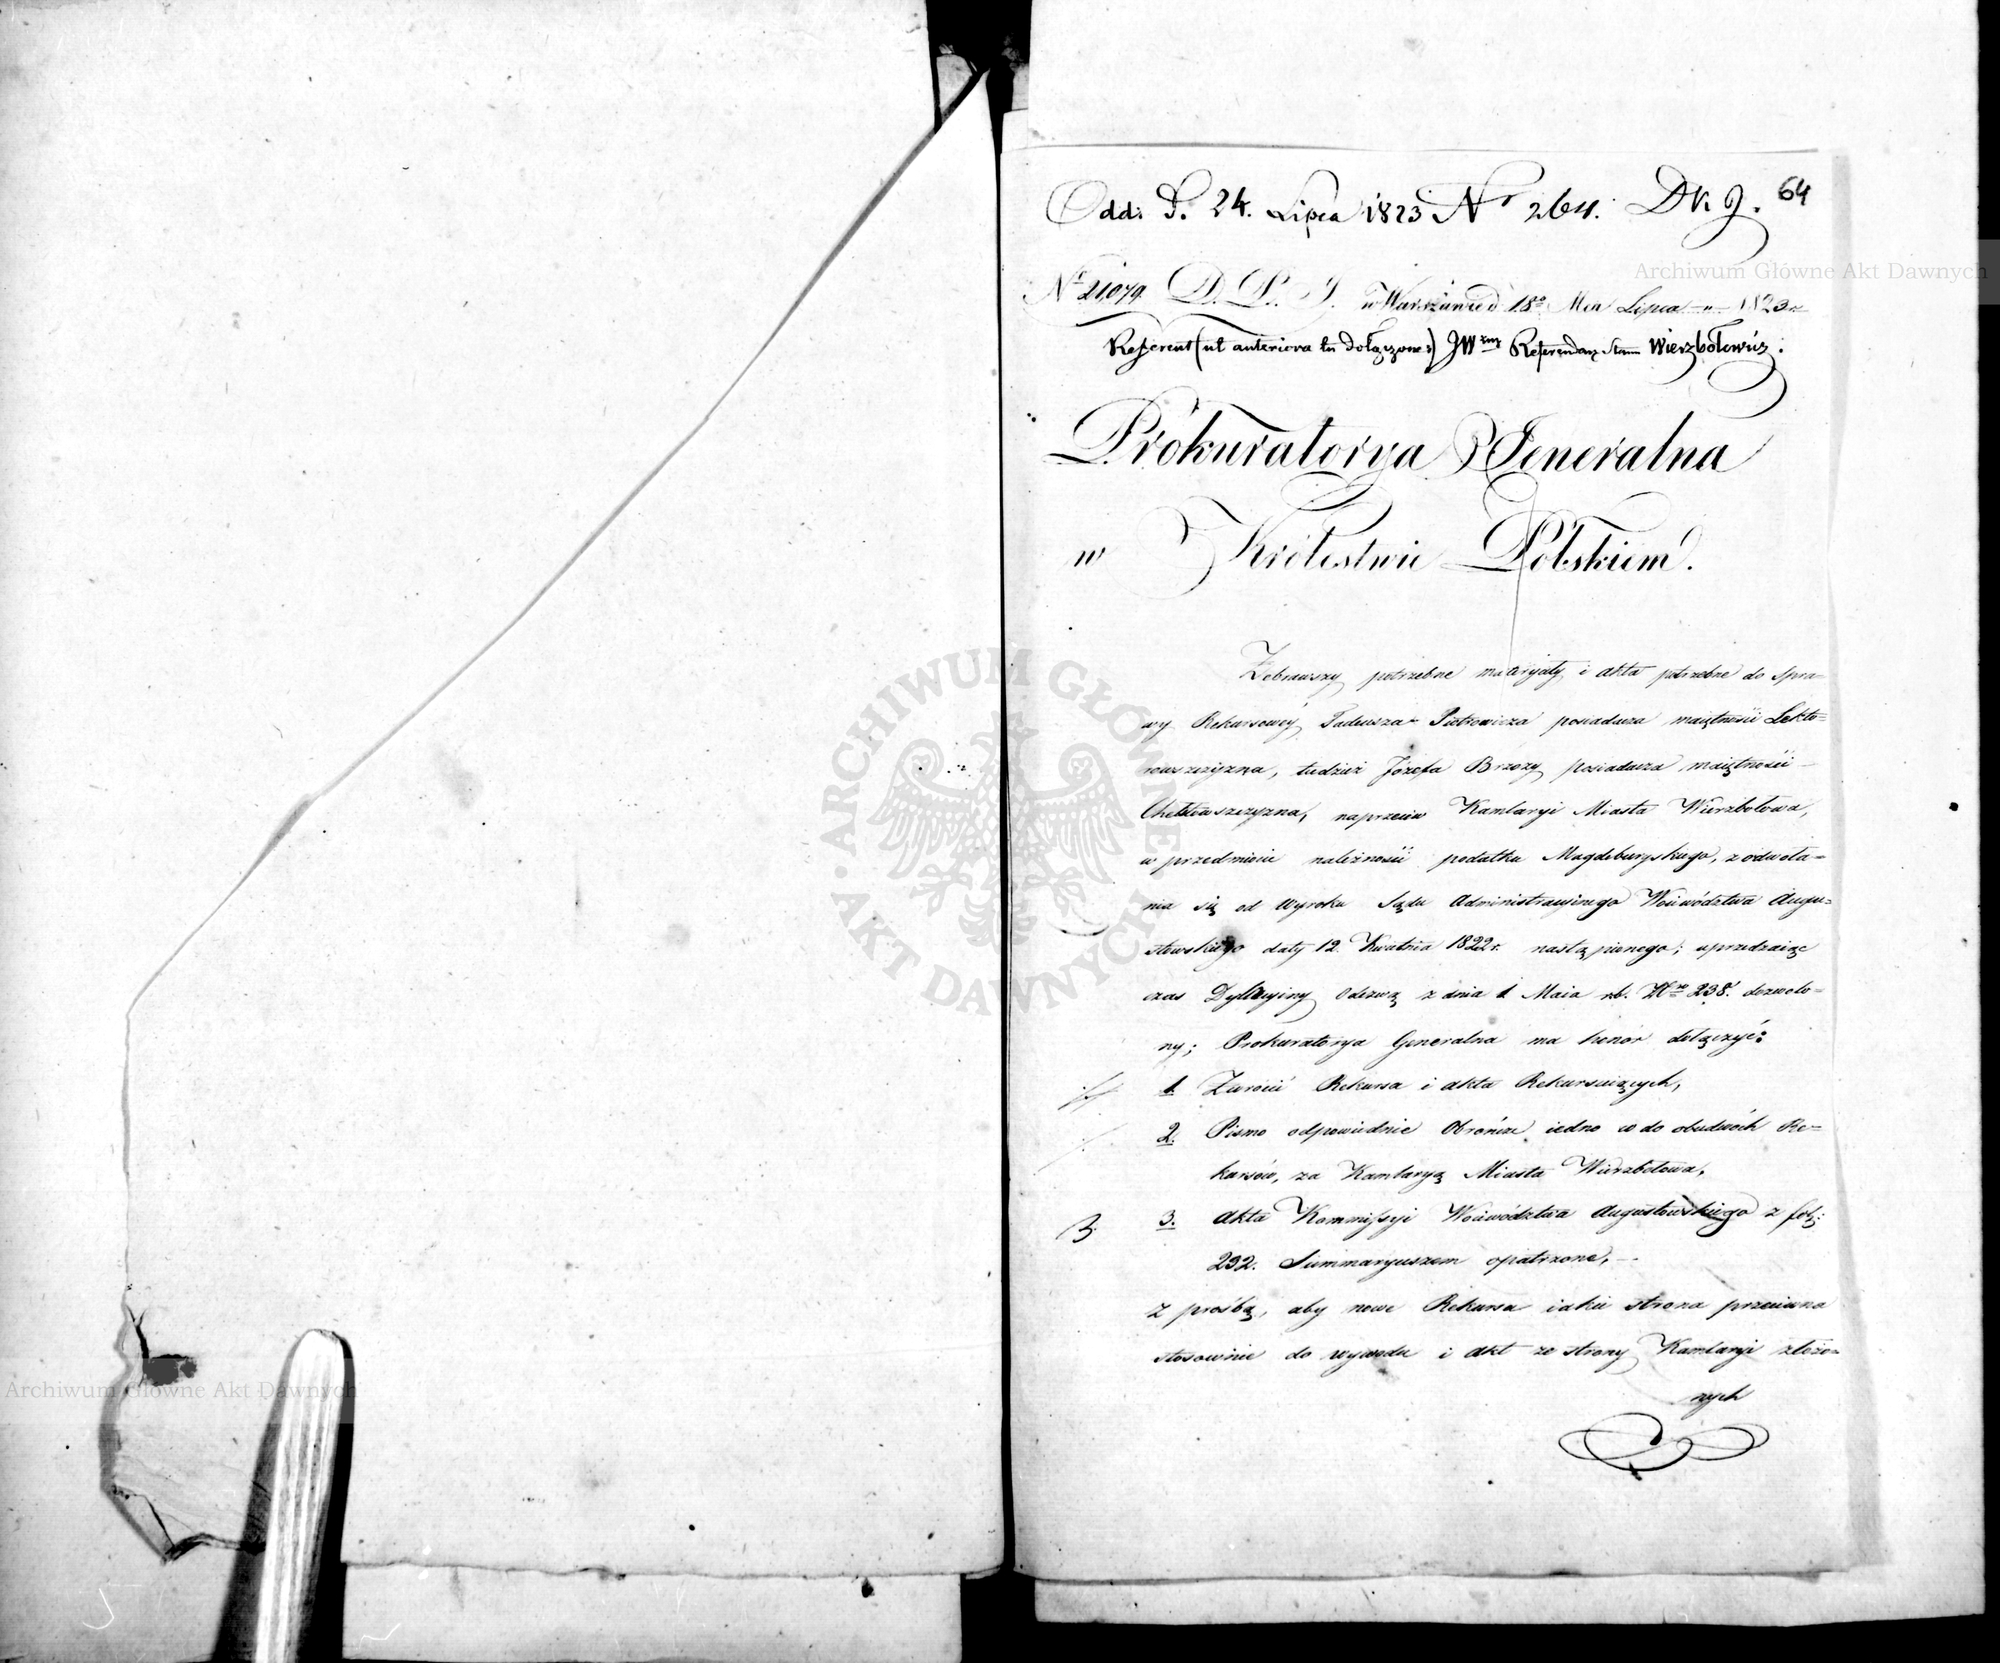 Odd: d. 24. Lipca 1823 Nr 264. Dk. J. 64
Nr 21,079. D. P. J. w Warszawie d. 18o Mca Lipca 1823 r.
Referent (ut anteriora tu dołączone:) JWzny Referendarz Stanu Wierzbołowicz.
Prokuratorya Jeneralna
w Królestwie Polskiem.
Zebrawszy potrzebne materyały i akta potrzebne do spra=
wy Rekursowey Tadeusza Piotrowicza posiadacza maiętności Lekto=
rowszczyzna, tudzież Józefa Brzozy posiadacza maiętności
Chełkowszczyzna, naprzeciw Kamlaryi Miasta Wierzbołowa,
w przedmiocie należności podatku Magdeburyskiego, z odwoła=
nia się od Wyroku Sądu Administracyinego Woiewództwa Augu=
stowskiego daty 12. Kwietnia 1822 r. nastąpionego; uprzedzaiąc
czas Dylacyiny Odezwą z dnia 1 Maia r.b. Nro 238. dozwolo=
ny; Prokuratorya Generalna ma honor dołączyć:
1. Zwrócić Rekursa i akta Rekursuiących,
2. Pismo odpowiednie Obrończe iedno co do obudwóch Re=
kursów, za Kamlaryą Miasta Wierzbołowa,
3. 3. Akta Kommissyi Woiewództwa Augustowskiego z fol:
292. Summaryuszem opatrzone,
z prośbą, aby nowe Rekursa iakie strona przeciwna
stosownie do wywodu i akt ze strony Kamlaryi złożo=
nych
Archiwum Główne Akt Dawnych
ARCHIWUM GŁÓWNE AKT DAWNYCH
Archiwum Główne Akt Dawnych